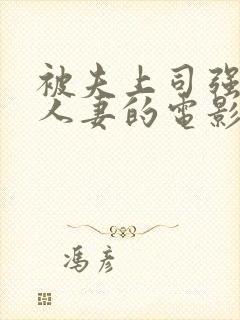 被夫上司强
人妻的电影
冯彦